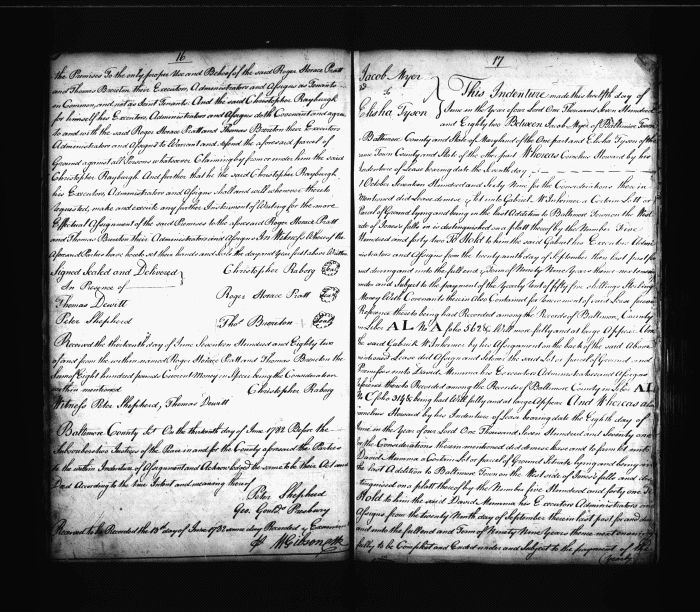 16
the Premises To the only proper Use and Behoof of the said Roger Horace Pratt
and Thomas Brereton their Executors Administrators and Assigns as Tenants
in Common, and not as Joint Tenants. And the said Christopher Rayburgh
for himself his Executors, Administrators and Assigns doth Covenant and agree
to and with the said Roger Horace Pratt and Thomas Brereton their Executors
Administrators and Assigns to Warrant and defend the aforesaid parcel of
Ground against all Persons whatsoever Claiming by from or under him the said
Christopher Rayburgh. And further that he the said Christopher Rayburgh,
his Executors, Administrators and Assigns shall and will whenever thereto
requested, make and execute any further Instrument of Writing for the more
Effectual Assignment of the said Premises to the aforesaid Roger Horace Pratt
and Thomas Brereton their Administrators and Assigns In Witness Whereof the
aforesaid Parties have hereto set their hands and seals the day and Year first above Written
Signed Sealed and Delivered } Christopher Raborg Seal
In Presence of Roger Horace Pratt Seal
Thomas Dewitt
Peter Shepherd Thos Brereton Seal
Received the thirteenth day of June Seventeen Hundred and Eighty two
of and from the within named Roger Horace Pratt and Thomas Brereton the
sum of Eight hundred pounds Current Money in Specie being the Consideration
within mentioned Christopher Raborg
Witness Peter Shepherd, Thomas Dewitt
Baltimore County Sct On the thirteenth day of June 1782 Before the
Subscribers two Justices of the Peace in and for the County aforesaid the Parties
to the within Indenture of Assignment and Acknowledged the same to be their Act and
Deed According to the true Intent and meaning thereof
Peter Shepherd
Geo. Gould Presbury
Received to be Recorded the 13th day of June 1782 same day Recorded & Examined
P Wm Gibson Clk
17
Jacob Myer
to
Elisha Tyson
This Indenture made this twelfth day of
June in the year of our Lord One Thousand Seven Hundred
and Eighty two Between Jacob Myer of Baltimore Town
Baltimore County and State of Maryland of the One part and Elisha Tyson of the
same Town County and State of the other part Whereas Cornelius Howard by his
Indenture of Lease bearing date the Seventh day
October Seventeen Hundred and Sixty Nine for the Considerations therein
Mentioned did Lease demise & let unto Gabriel McInhimer a Certain Lott or
Parcel of Ground lying and being in the last Addition to Baltimore Town on the West
side of Jones's falls in is distinguished on a platt thereof by the Number Five
Hundred and forty two To Hold to him the said Gabriel his Executors Admin
istrators and Assigns from the twenty ninth day of September then last past for
and during and unto the full end & Term of Ninety Nine Years thence next ensuing
under and Subject to the Payment of the Yearly Rent of fifty five shillings Sterling
Money With Covenants therein Also Contained for
Reference thereto being had Recorded among the Records of Baltimore County
in Libr AL No A folio 367 & Will more fully and at large Appear. And
the said Gabriel by his Assignment on the back of the said Above
mentioned Lease did Assign and Set over the said Lot or parcel of Ground and
Premises unto David Mumma his Executors Administrators and Assigns
reference thereto Recorded among the Records of Baltimore County in Libr AL
No C folio 314 & being had Will fully and at large Appear And Whereas
Cornelius Howard by his Indenture of Lease bearing date the Eighth day of
June in the Year of our Lord One Thousand Seven Hundred and Seventy one
for the Considerations therein mentioned did demise lease and to farm let unto
David Mumma a Certain Lot or parcel of Ground Situate lying and being in
the last Addition to Baltimore Town on the West side of Jones's falls and dis
tinguished on a platt thereof by the Number five Hundred and forty one To
Hold to him the said David Mumma his Executors Administrators and
Assigns from the twenty Ninth day of September therein last past for and during
and unto the full end and Term of Ninety Nine years thence next ensuing
fully to be Compleat and Ended under and Subject to the payment of the
Yearly